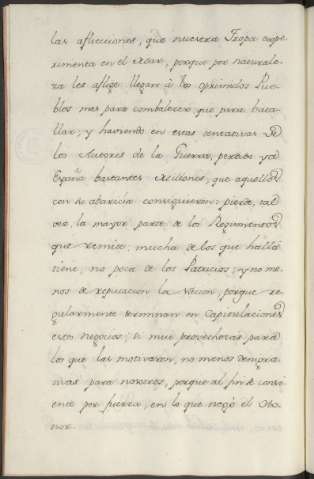 las aflicciones, que nuestra Tropa expe-
rimenta en el Mar, porque por naturale-
za les aflige llegar à los oprimidos Pue-
blos mas para combalecer que para bata-
llar; y haviendo en estas tentativas de
los Autores de la Guerra, perdido ya
España bastantes Millones, que aquellos
con su abaricia consiguieron: pierde, tal
vez, la mayor parte de los Regimientos
que remite; mucha de los que halli
tiene, no poca de los Patricios; y no me-
nos de reputacion la Nacion; porque re-
gularmente terminan en Capitulaciones
estos negocios; muy provechosas para
los que las motivaron, no menos
para nosotros, porque al fin se consi-
ente por fuerza, en lo que negó el Ho-
nor.